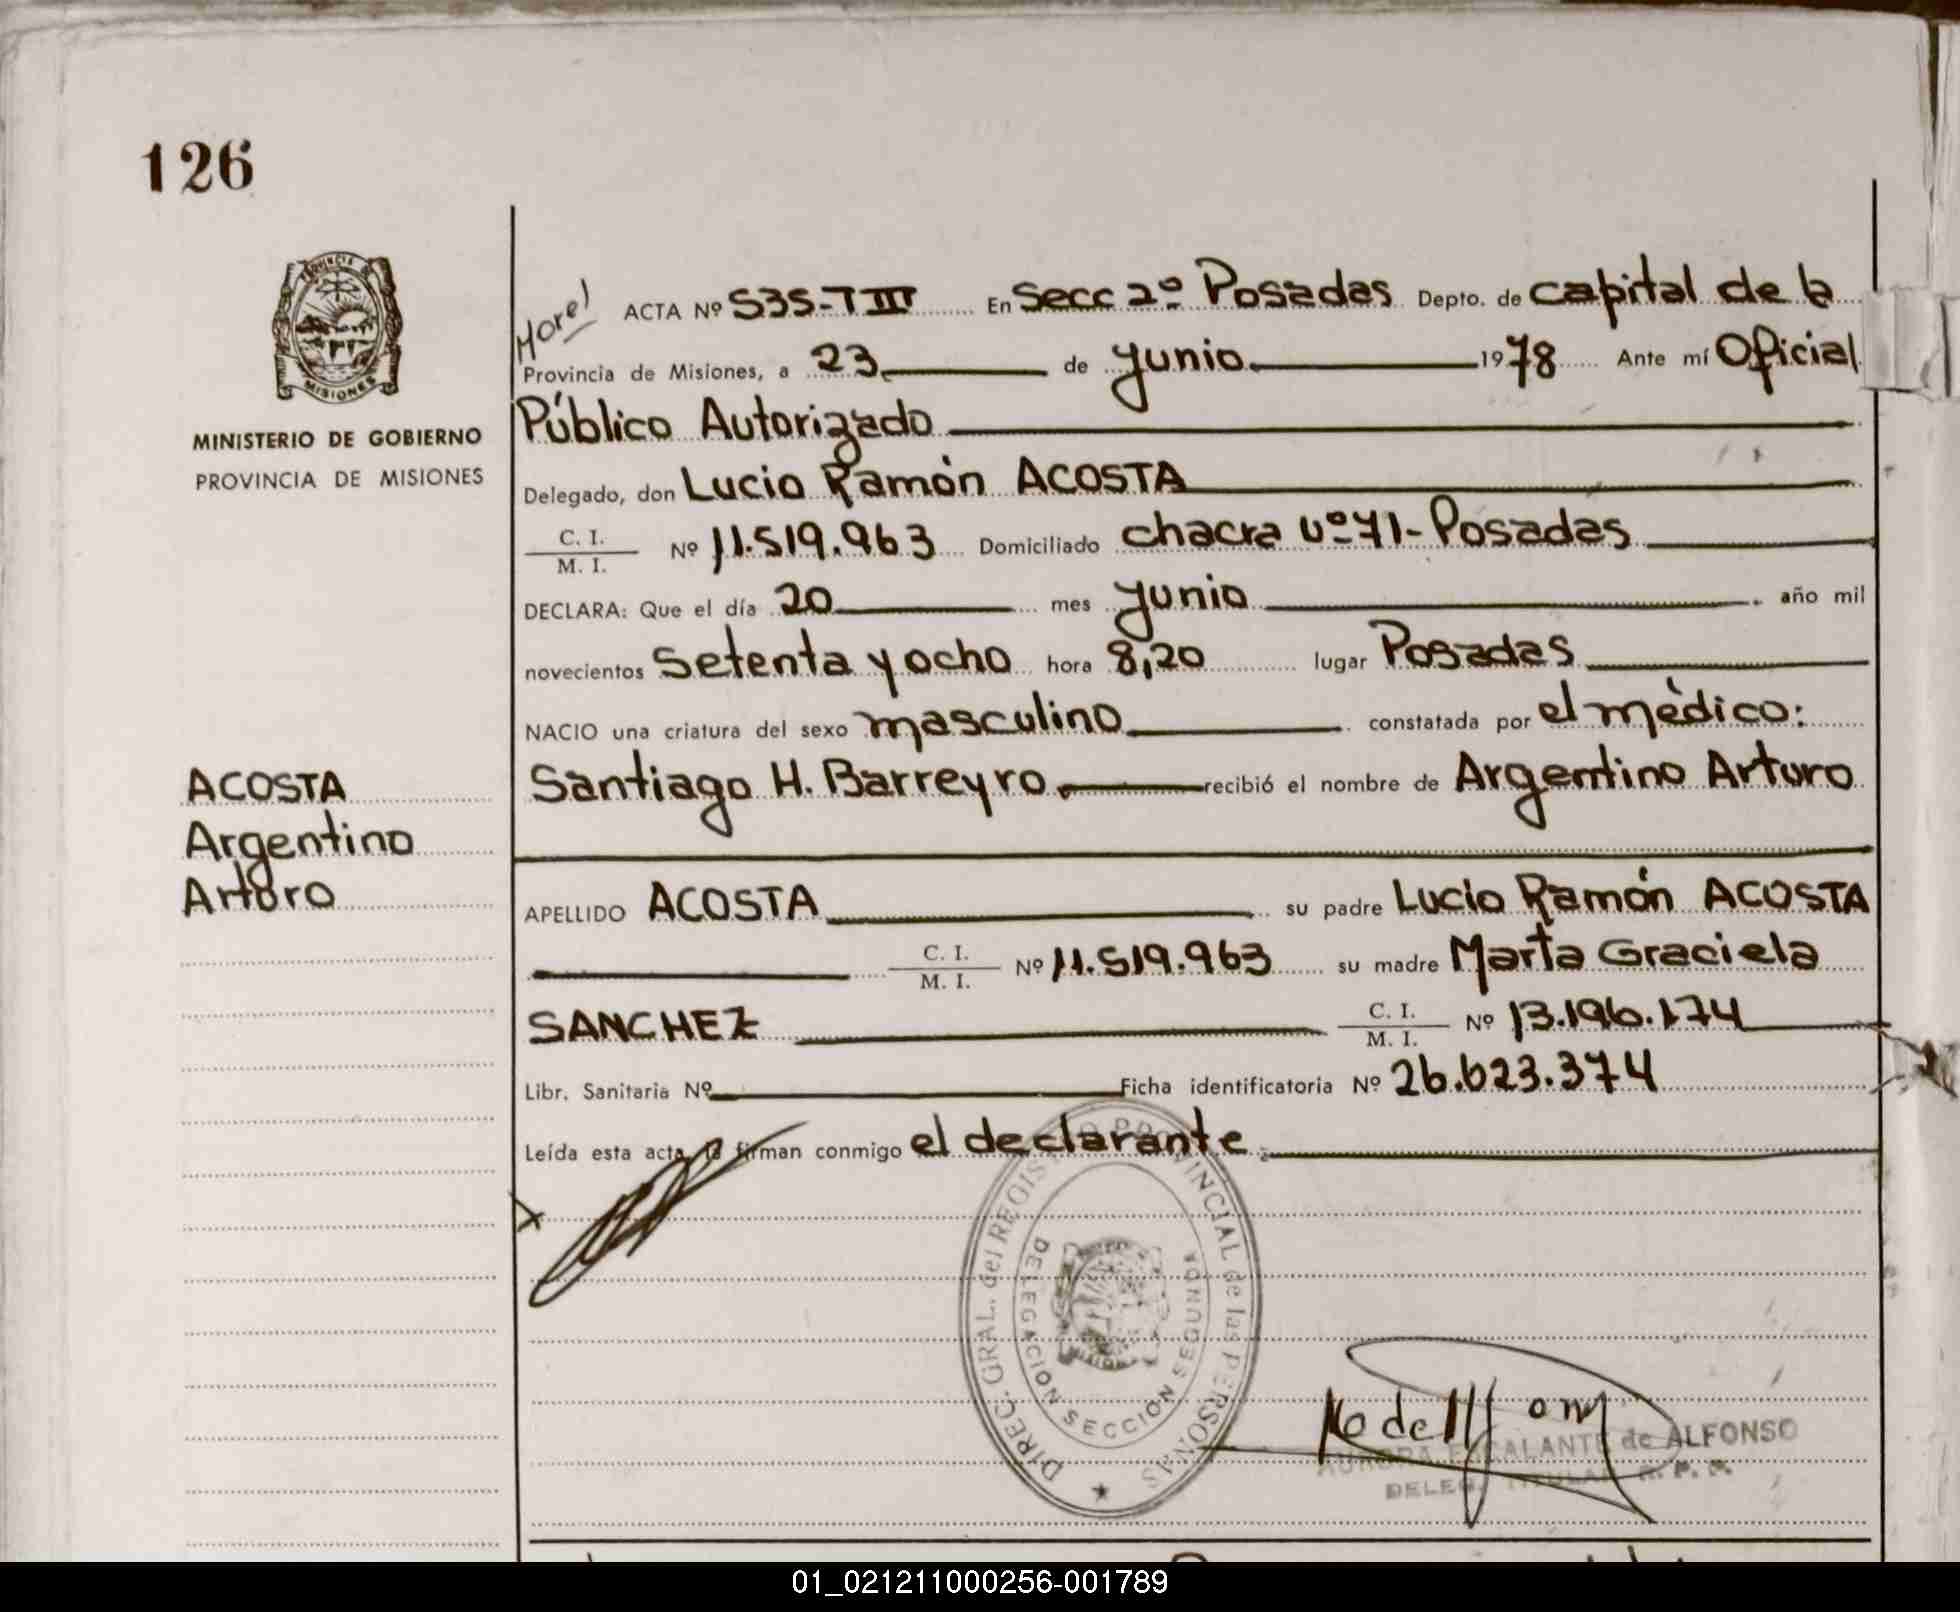 126
PROVINCIA DE
MISIONES
MINISTERIO DE GOBIERNO
PROVINCIA DE MISIONES
ACOSTA
Argentino
Arturo
ACTA Nº 535-TIII En Secc 2º Posadas Depto. de Capital de la
Provincia de Misiones, a 23 de Junio 1978 Ante mí Oficial
Público Autorizado
Delegado, don Lucio Ramón ACOSTA
C. I.
M. I. Nº 11.519.963 Domiciliado chacra Nº 71- Posadas
DECLARA: Que el día 20 mes Junio año mil
novecientos Setenta y ocho hora 8,20 lugar Posadas
NACIO una criatura del sexo masculino constatada por el mèdico:
Santiago H. Barreyro recibió el nombre de Argentino Arturo
APELLIDO ACOSTA su padre Lucio Ramón ACOSTA
C. I.
M. I. Nº 11.519.963 su madre Marta Graciela
SANCHEZ C. I.
M. I. Nº 13.196.174
Libr. Sanitaria Nº Ficha identificatoria Nº 26.623.374
Leída esta acta la firman conmigo el declarante
DIREC. GRAL. del REGISTRO PROVINCIAL de las PERSONAS
DELEGACION SECCION SEGUNDA
AURORA ESCALANTE de ALFONSO
DELEG. TITULAR R. P. P.
01_021211000256-001789